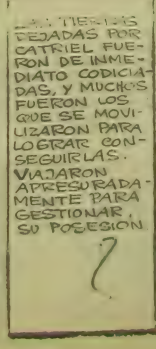 LAS TIERRAS
DEJADAS POR
CATRIEL FUE-
RON DE INME-
DIATO CODICIA-
DAS, Y MUCHOS
FUERON LOS
QUE SE MOVI-
LIZARON PARA
LOGRAR CON-
SEGUIRLAS.
VIAJARON
APRESURADA-
MENTE PARA
GESTIONAR
SU POSESION